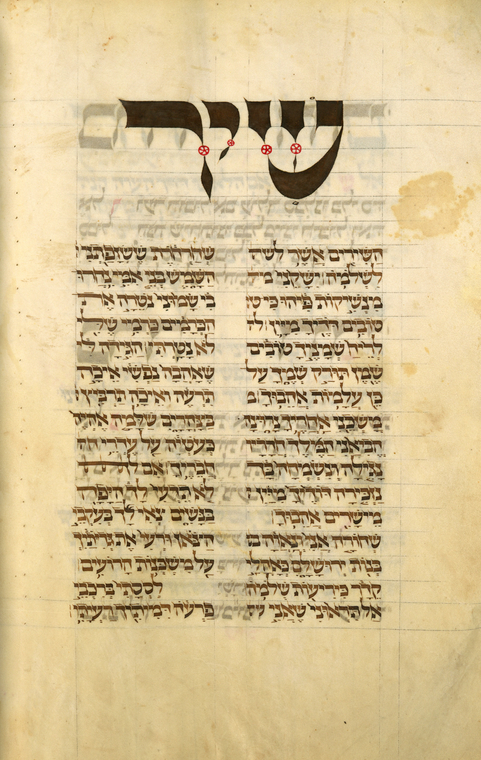 שיר
השירים אשר לש
לשלמה ישקני מ
מנשיקות פיהו כי ט
טובים דדיך מיין ל
לריח שמניך טובים
שמן תורק שמך על
כן עלמות אהבוך מ
משכני אחריך נרוצה
הביאני המלך חדריו
נגילה ונשמחה בך
נזכירה דדיך מיין
מישרים אהבוך
שחורה אני ונאוה ב
בנות ירושלם כאהלי
קדר כיריעות שלמה
אל תראוני שאני ש
שחרחרת ששזפתני
השמש בני אמי נחרו
בי שמוני נטרה את
הכרמים כרמי שלי
לא נטרתי הגידה לי
שאהבה נפשי איכה
תרעה איכה תרביץ
בצהרים שלמה אהיה
כעטיה על עדרי ח
חבריך אם ל
לא תדעי לך היפה
בנשים צאי לך בעקבי
הצאן ורעי את גדיתיך
על משכנות הרועים
לססתי ברכבי
פרעה דמיתיך רעיתי